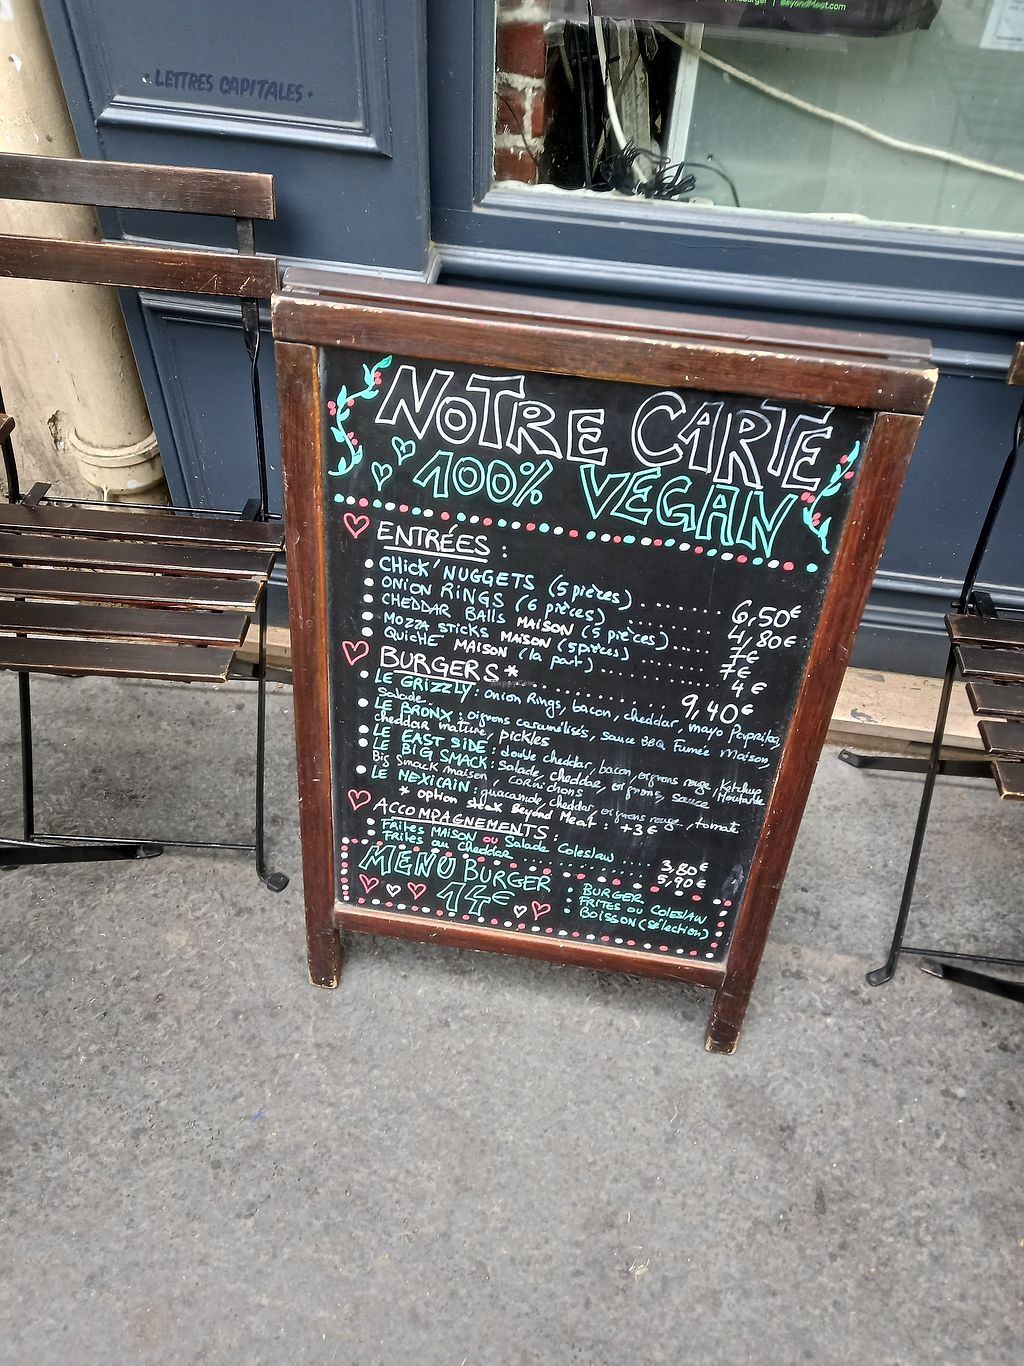 BeyondMeat.com
• LETTRES CAPITALES •
NOTRE CARTE
100% VEGAN
ENTRÉES :
• CHICK'NUGGETS (5 pièces) ........ 6,50€
• ONION RINGS (6 pièces) ....... 4,80€
• CHEDDAR BALLS MAISON (5 pièces) ... 7€
• MOZZA STICKS MAISON (5 pièces) ...... 7€
• QUICHE MAISON (la part) ....... 4€
BURGERS* ........... 9,40€
• LE GRIZZLY : onion Rings, bacon, cheddar, mayo Paprika,
Salade
• LE BRONX : oignons caramélisés, sauce BBQ Fumée Maison,
cheddar mature, pickles
• LE EAST SIDE : double cheddar, bacon, oignons rouge, Ketchup
• LE BIG SMACK : Salade, cheddar, oignons, sauce Moutarde
Big Smack maison, cornichons
• LE MEXICAIN : guacamole, cheddar, oignons rouge, tomate
* option steak Beyond Meat : +3€
ACCOMPAGNEMENTS :
• Frites MAISON ou Salade Coleslaw .... 3,80€
• Frites au Cheddar .............. 5,90€
MENU BURGER
14€
• BURGER
• FRITES OU COLESLAW
• BOISSON (sélection)